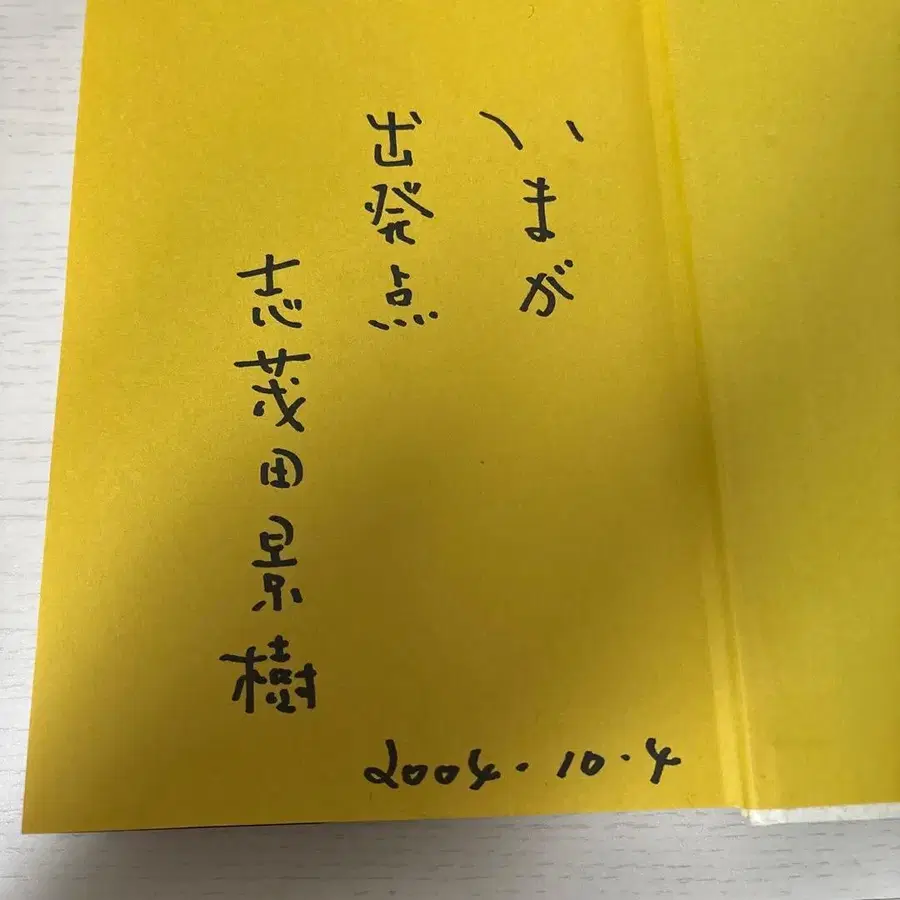 いまが
出発点
志茂田景樹
2004.10.4